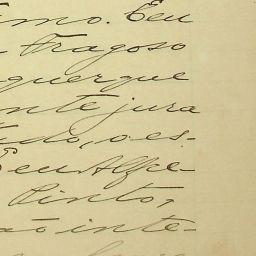 imo. Eeu
Fragoso
querque
nte jura
tudo, o es-
Eeu Alfre-
Pinto,
ão inte-